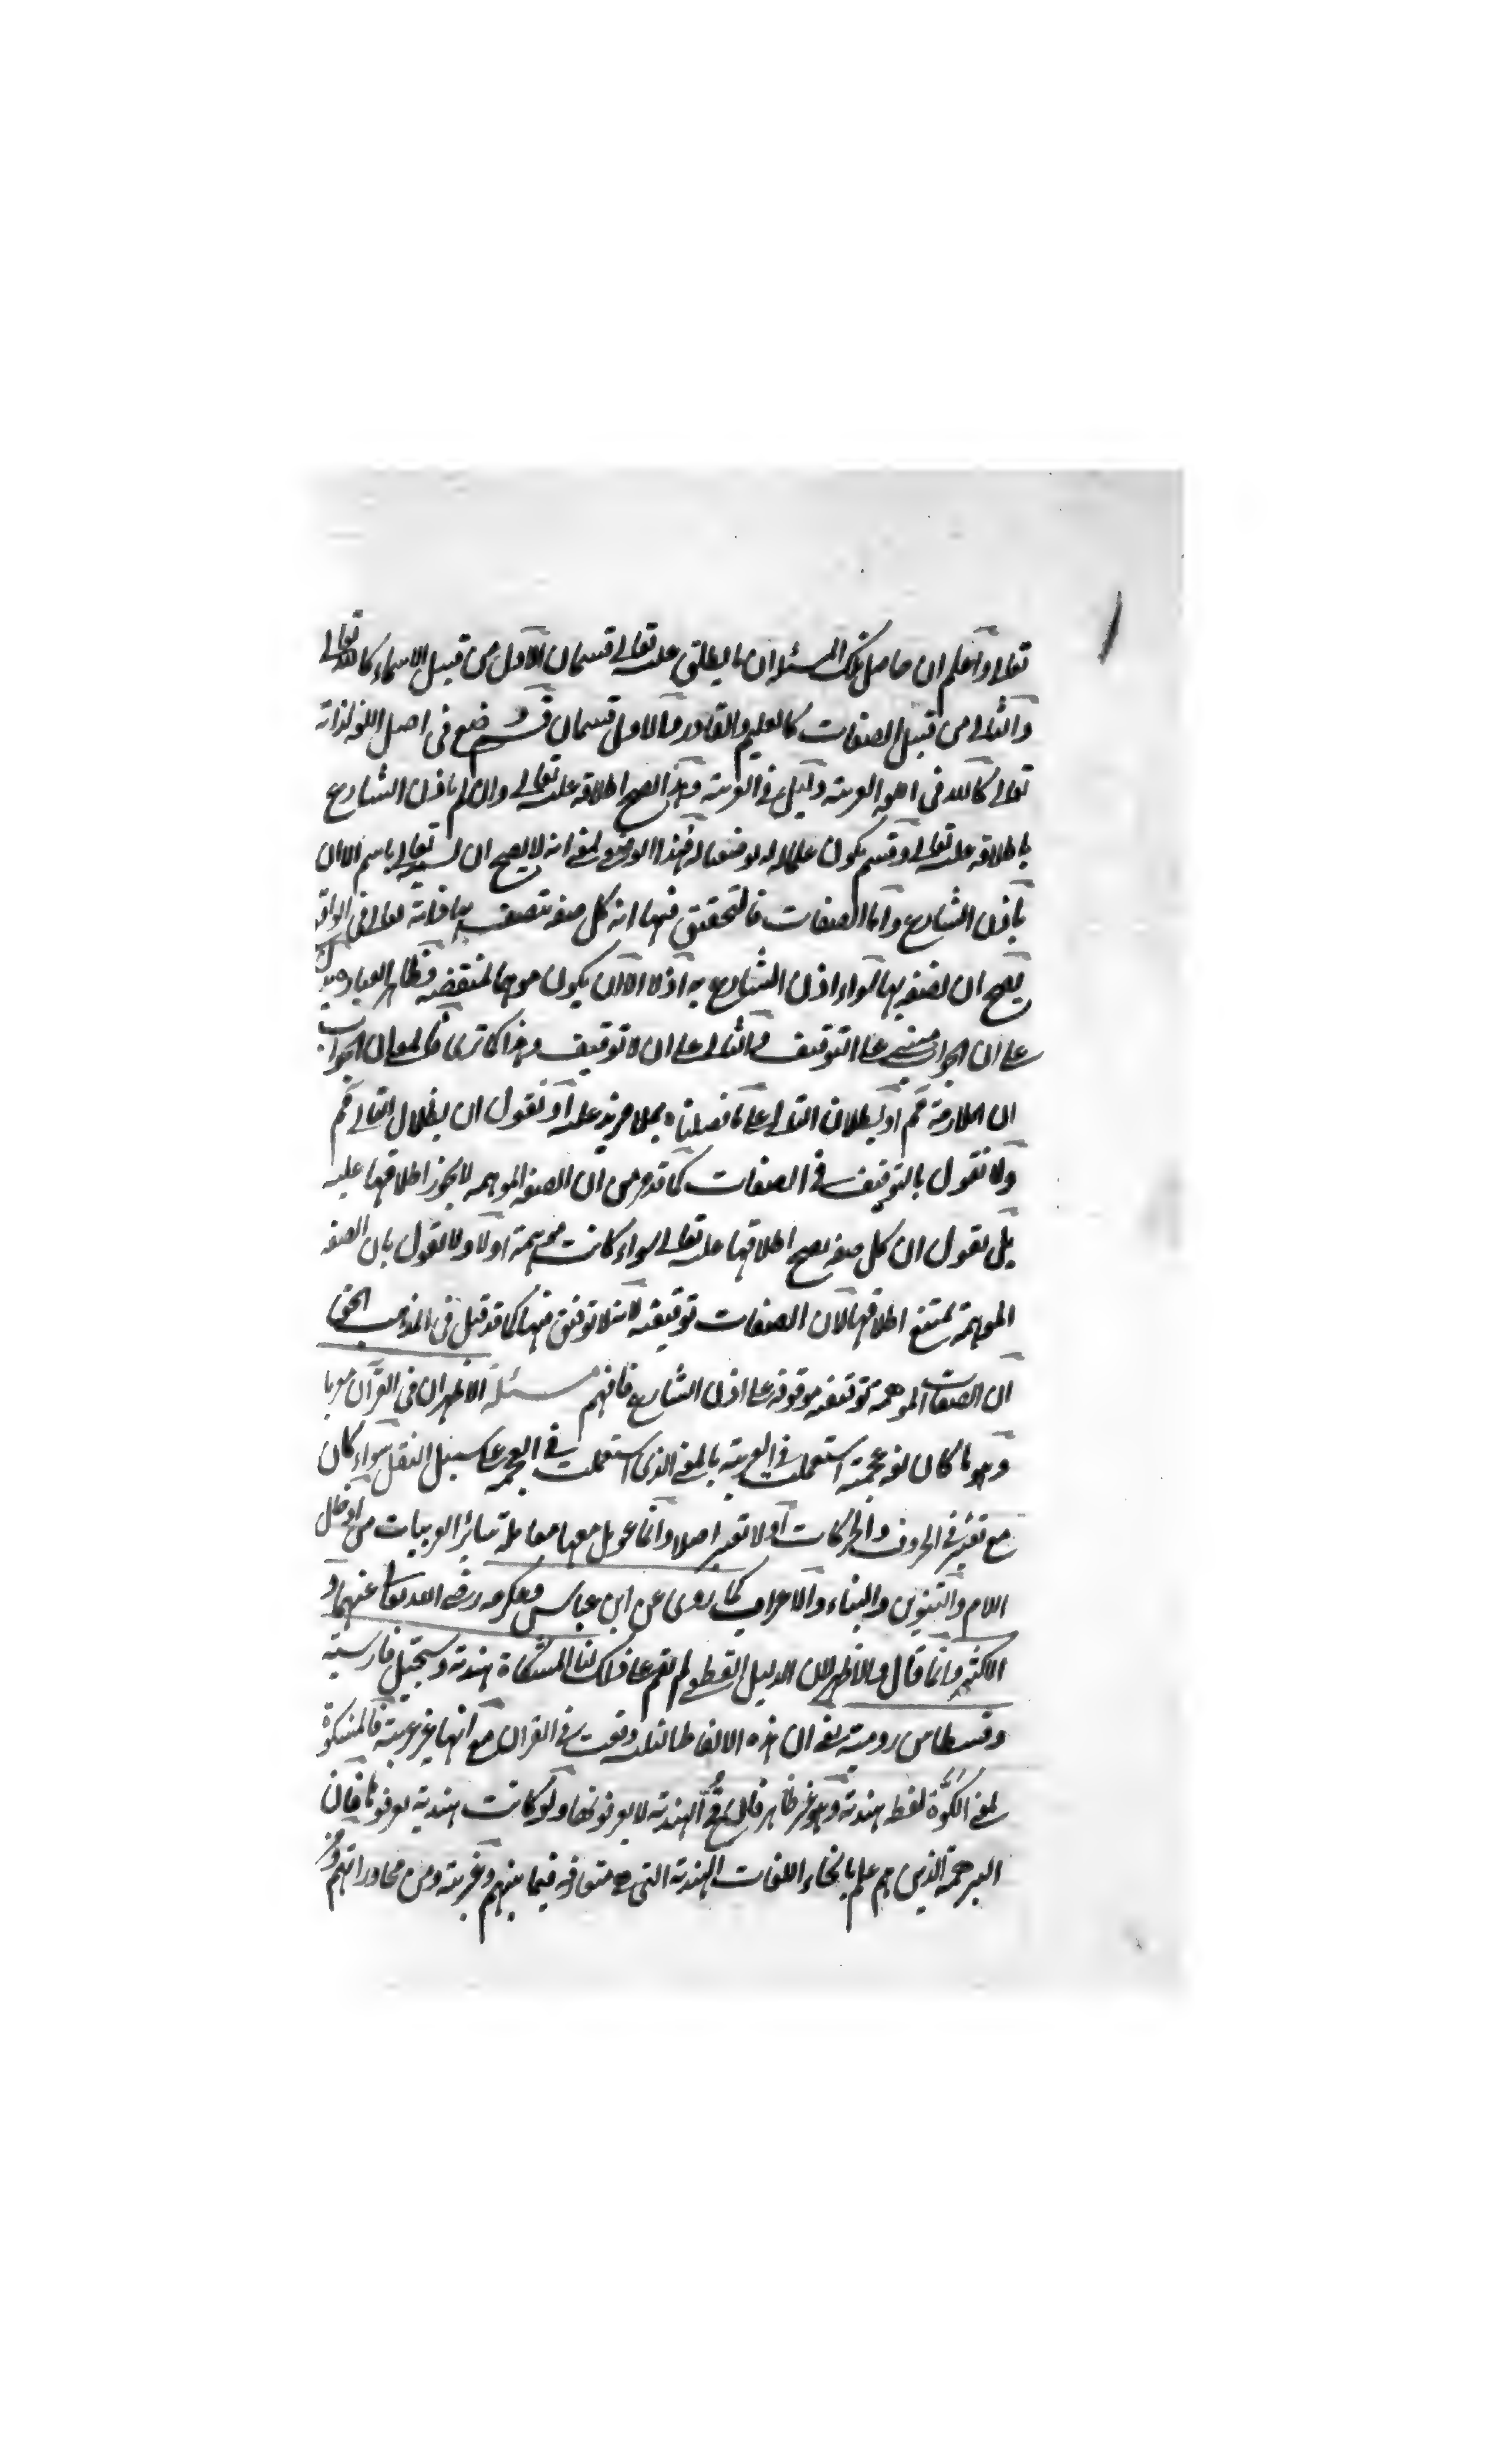 تعالى واعلم ان حاصل تلك المسئلة ان ما يطلق عليه تعالى قسمان الاول من قبيل الاسماء كالله تعالى
والثاني من قبيل الصفات كالعليم والقادر والاول قسمان قسم وضع في اصل اللغة لذاته
تعالى كالله في لغة العربية وهذا يصح اطلاقه عليه تعالى وان لم ياذن الشارع
باطلاقه عليه تعالى وقسم يكون علما له لوضعنا له فهذا الوضع لغو انه لا يصح ان نسميه تعالى باسم الا ان
ياذن الشارع واما الصفات فالتحقيق فيها انه كل صفة تتصف بها ذاته تعالى في الواقع
يصح ان نصفه بها سواء اذن الشارع به او لا الا ان يكون موهما لمنقصة وظاهر العبارة
على ان الجواب مبني على التوقيف والثاني على ان لا توقيف وهذا كما ترى الجواب
ان الملازمة ثم او بطلان التالي على ما فصلناه بما لا مزيد عليه او نقول ان بطلان التالي ثم
ولا نقول بالتوقيف في الصفات كما قد مر من ان الصفة الموهمة لا يجوز اطلاقها عليه
بل نقول ان كل صفة يصح اطلاقها عليه تعالى سواء كانت موهمة اولا ولا نقول بان الصفة
الموهمة يمتنع اطلاقها لان الصفات توقيفية لانه لا توقيف فيها كما قد قيل في المذهب الحق
ان الصفات الموهمة توقيفية موقوفة على اذن الشارع فافهم مسئلة الاظهر ان في القرآن معربا
وهو ما كان لغة عجمية استعملت في العربية بالمعنى الذي استعملت في العجمة على سبيل النقل سواء كان
مع تغير في الحروف والحركات او لا تغير اصلا وانما عومل معها معاملة سائر العربيات من ادخال
اللام والتنوين والبناء والاعراب كما روى عن ابن عباس وعكرمة رضي الله تعالى عنهما و
الاكثر وانما قال والاظهر لان الدليل القطعي لم يقم على ذلك لنا المشكاة هندية وسجيل فارسية
وقسطاس رومية يعني ان هذه الالفاظ الثلثة وقعت في القرآن مع انها غير عربية فالمشكوة
بمعنى الكوة لفظ هندية وهو غير ظاهر فان الهندية لا يعرفونها ولو كانت هندية يعرفونها فان
البراهمة الذين هم علم بانحاء اللغات الهندية التي هي متعارفة فيما بينهم وغريبة ومن محاوراتهم